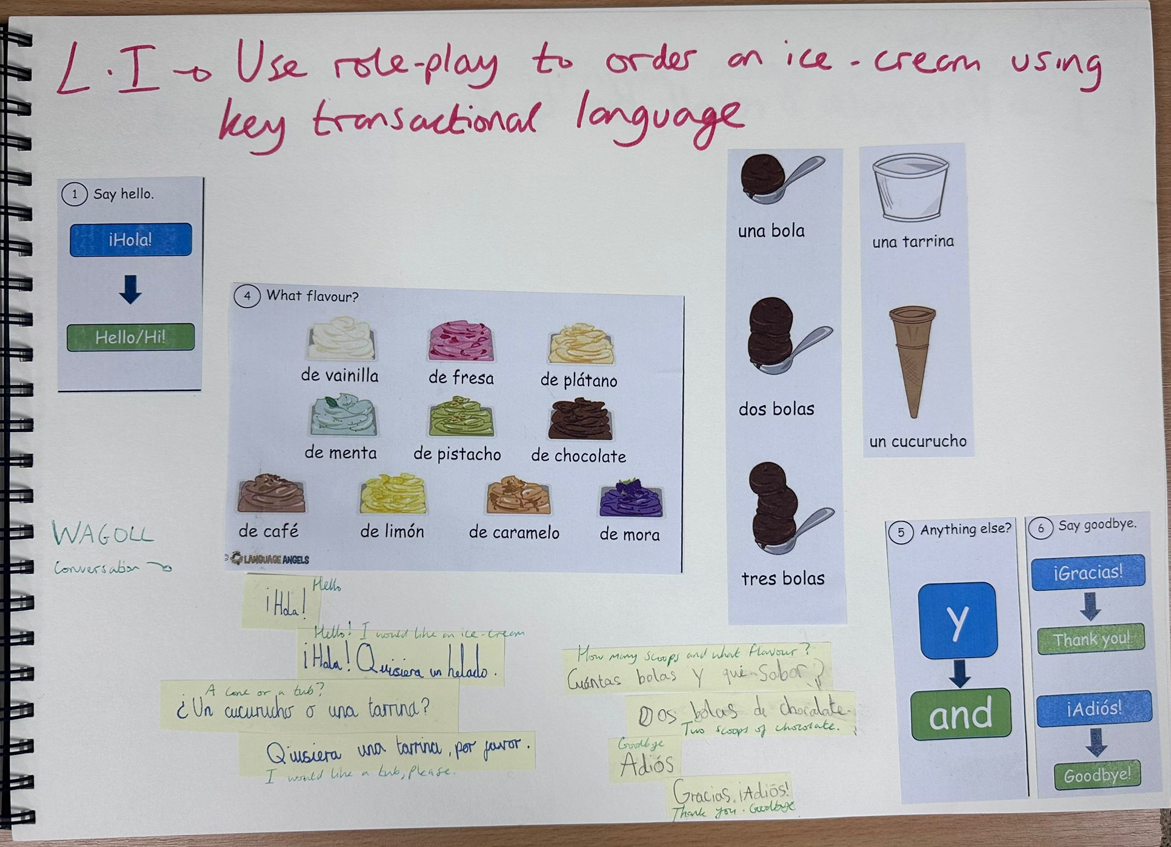 L.I → Use role-play to order an ice-cream using
key transactional language
1 Say hello.
¡Hola!
Hello/Hi!
4 What flavour?
de vainilla
de fresa
de plátano
de menta
de pistacho
de chocolate
de café
de limón
de caramelo
de mora
LANGUAGE ANGELS
una bola
dos bolas
tres bolas
una tarrina
un cucurucho
5 Anything else?
y
and
6 Say goodbye.
¡Gracias!
Thank you!
¡Adiós!
Goodbye!
WAGOLL
Conversation →
Hello
¡Hola!
Hello! I would like an ice-cream
¡Hola! Quisiera un helado.
A cone or a tub?
¿Un cucurucho o una tarrina?
Quisiera una tarrina, por favor.
I would like a tub, please.
How many scoops and what flavour?
Cuántas bolas y qué Sabor?
Dos bolas de chocolate.
Two scoops of chocolate.
Goodbye
Adiós
Gracias, ¡Adiós!
Thank you. Goodbye